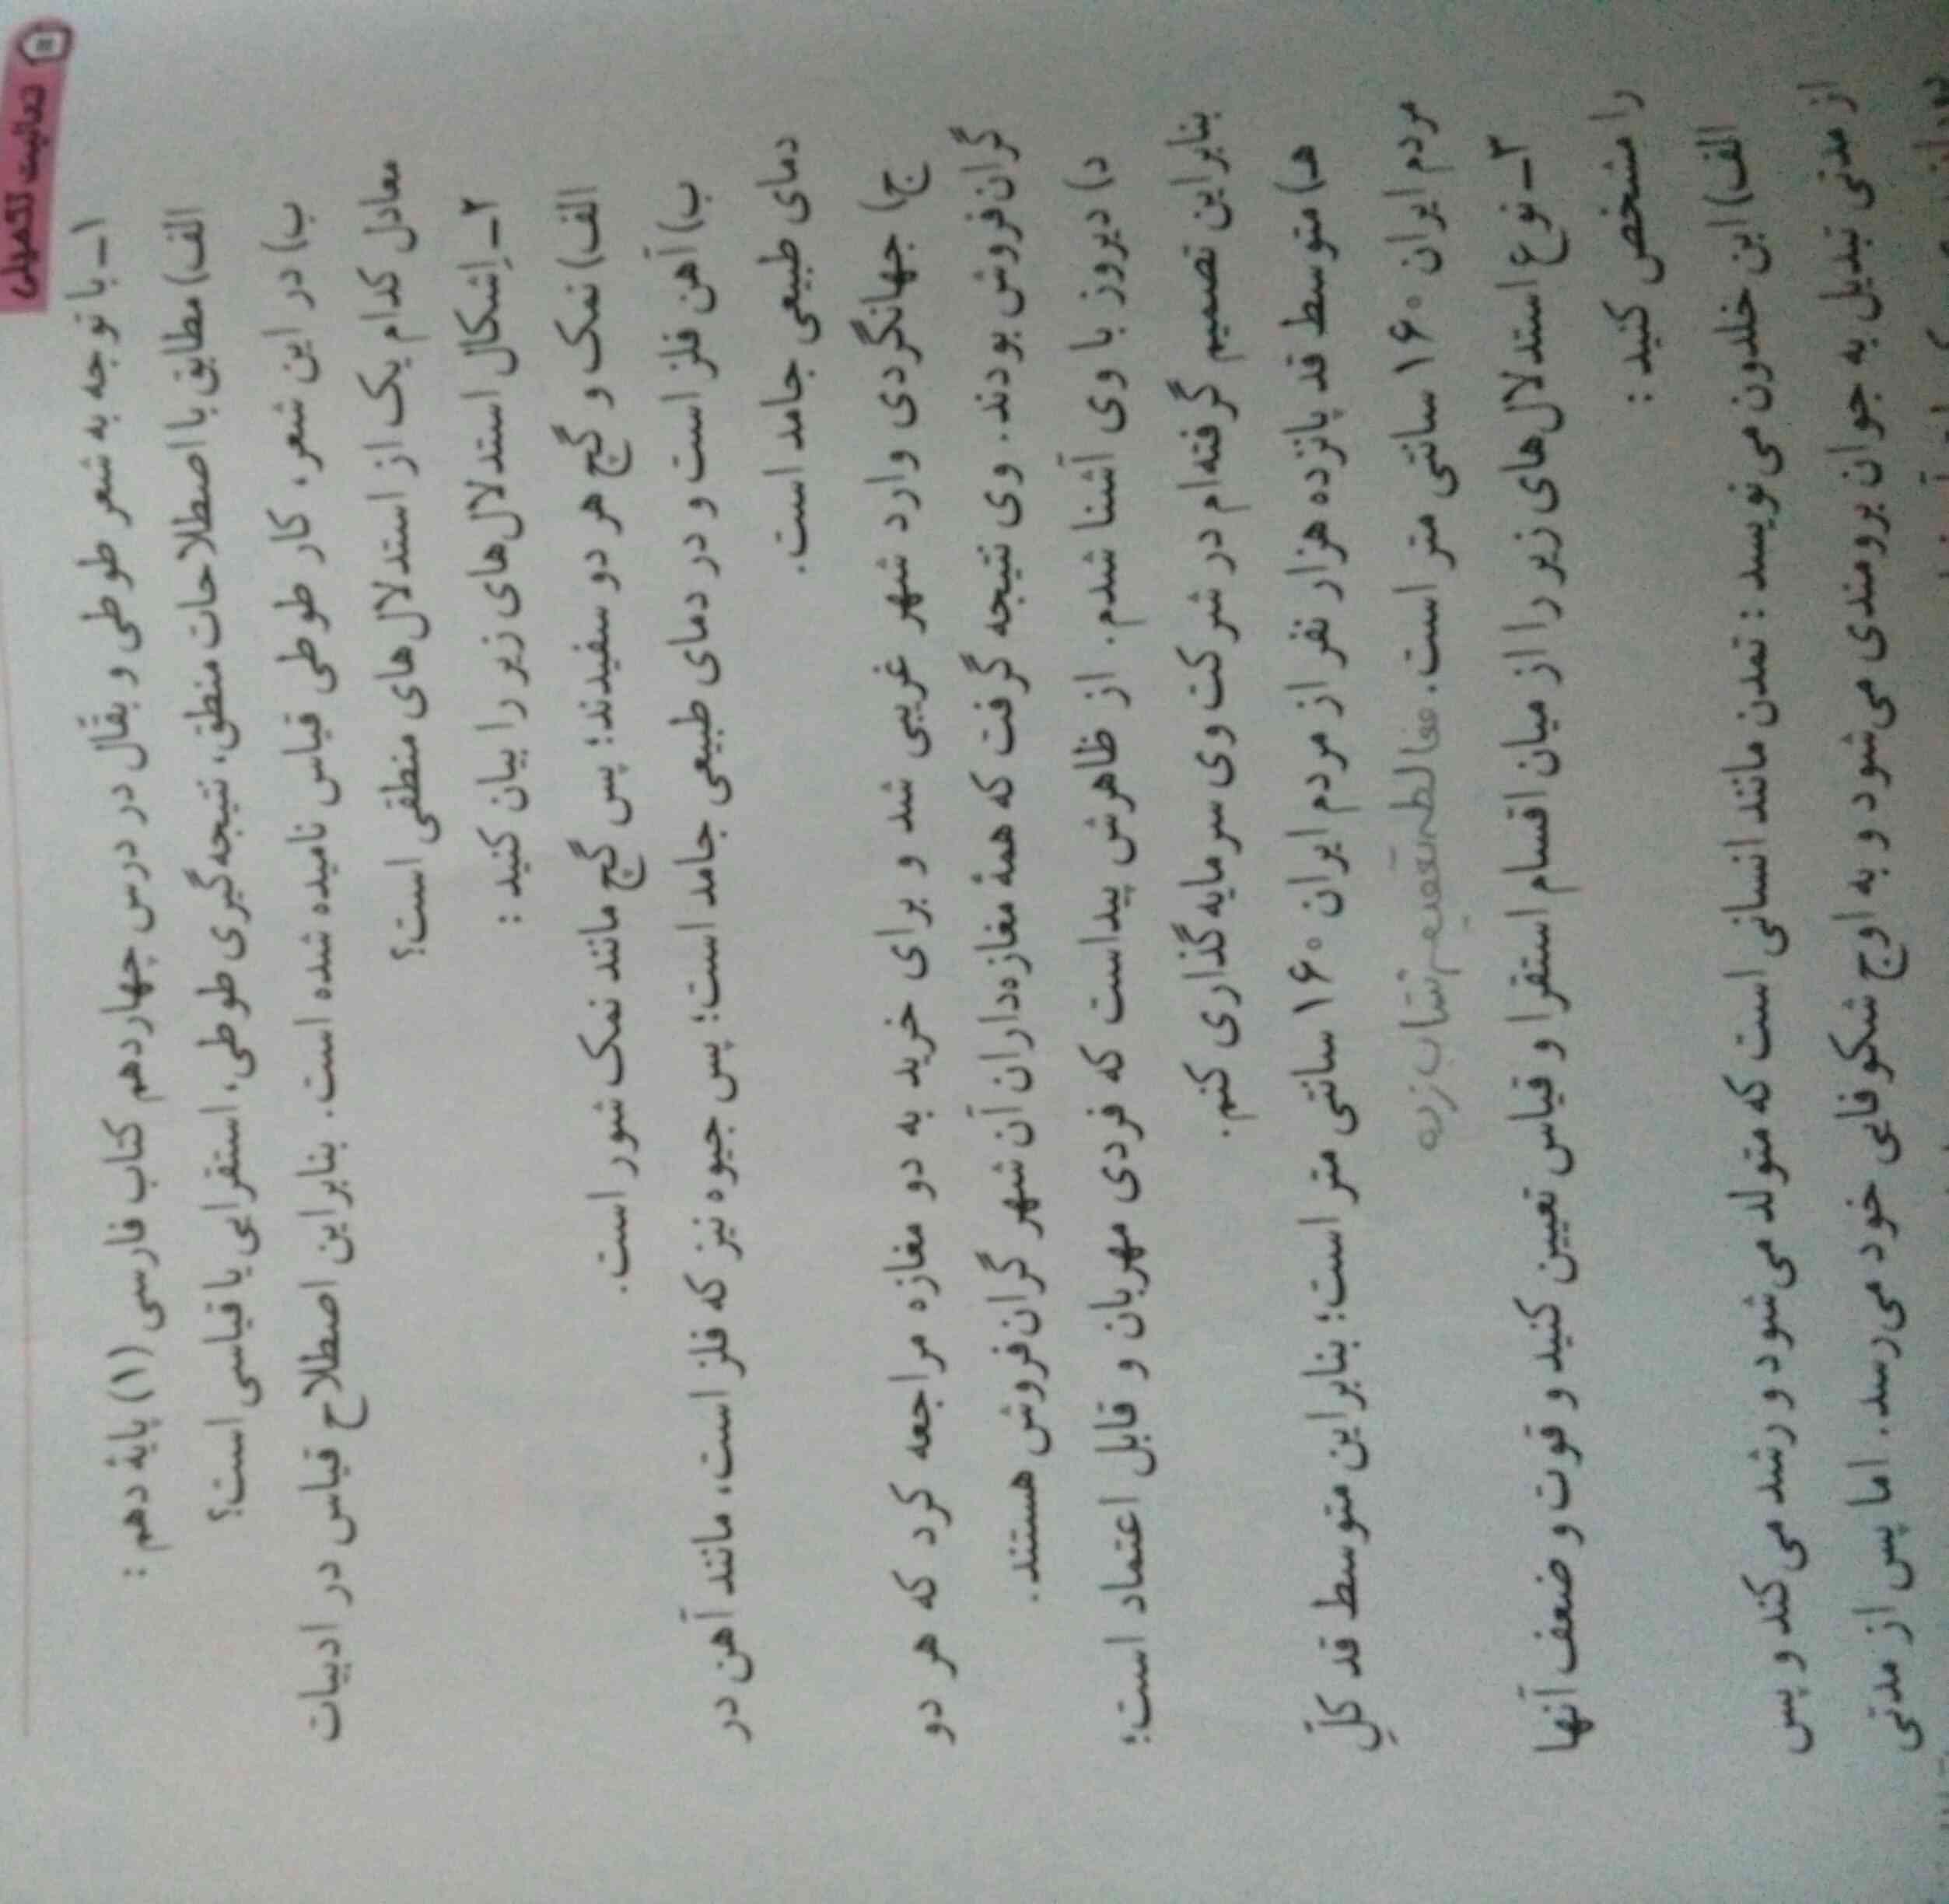 فعالیت تکمیلی
۱ـ با توجه به شعر طوطی و بقّال در درس چهاردهم کتاب فارسی (۱) پایهٔ دهم :
الف) مطابق با اصطلاحات منطق، نتیجه‌گیری طوطی، استقرایی یا قیاسی است؟
ب) در این شعر، کار طوطی قیاس نامیده شده است. بنابراین اصطلاح قیاس در ادبیات
معادل کدام یک از استدلال‌های منطقی است؟
۲ـ اِشکال استدلال‌های زیر را بیان کنید :
الف) نمک و گچ هر دو سفیدند؛ پس گچ مانند نمک شور است.
ب) آهن فلز است و در دمای طبیعی جامد است؛ پس جیوه نیز که فلز است، مانند آهن در
دمای طبیعی جامد است.
ج) جهانگردی وارد شهر غریبی شد و برای خرید به دو مغازه مراجعه کرد که هر دو
گران‌فروش بودند. وی نتیجه گرفت که همهٔ مغازه‌داران آن شهر گران‌فروش هستند.
د) دیروز با وی آشنا شدم. از ظاهرش پیداست که فردی مهربان و قابل اعتماد است؛
بنابراین تصمیم گرفته‌ام در شرکت وی سرمایه‌گذاری کنم.
هـ) متوسط قد پانزده هزار نفر از مردم ایران ۱۶۰ سانتی متر است؛ بنابراین متوسط قد کلّ
مردم ایران ۱۶۰ سانتی متر است. مغالطه تعمیم شتاب زده
۳ـ نوع استدلال‌های زیر را از میان اقسام استقرا و قیاس تعیین کنید و قوت و ضعف آنها
را مشخص کنید :
الف) ابن خلدون می‌نویسد : تمدن مانند انسانی است که متولد می‌شود و رشد می‌کند و پس
از مدتی تبدیل به جوان برومندی می‌شود و به اوج شکوفایی خود می‌رسد. اما پس از مدتی